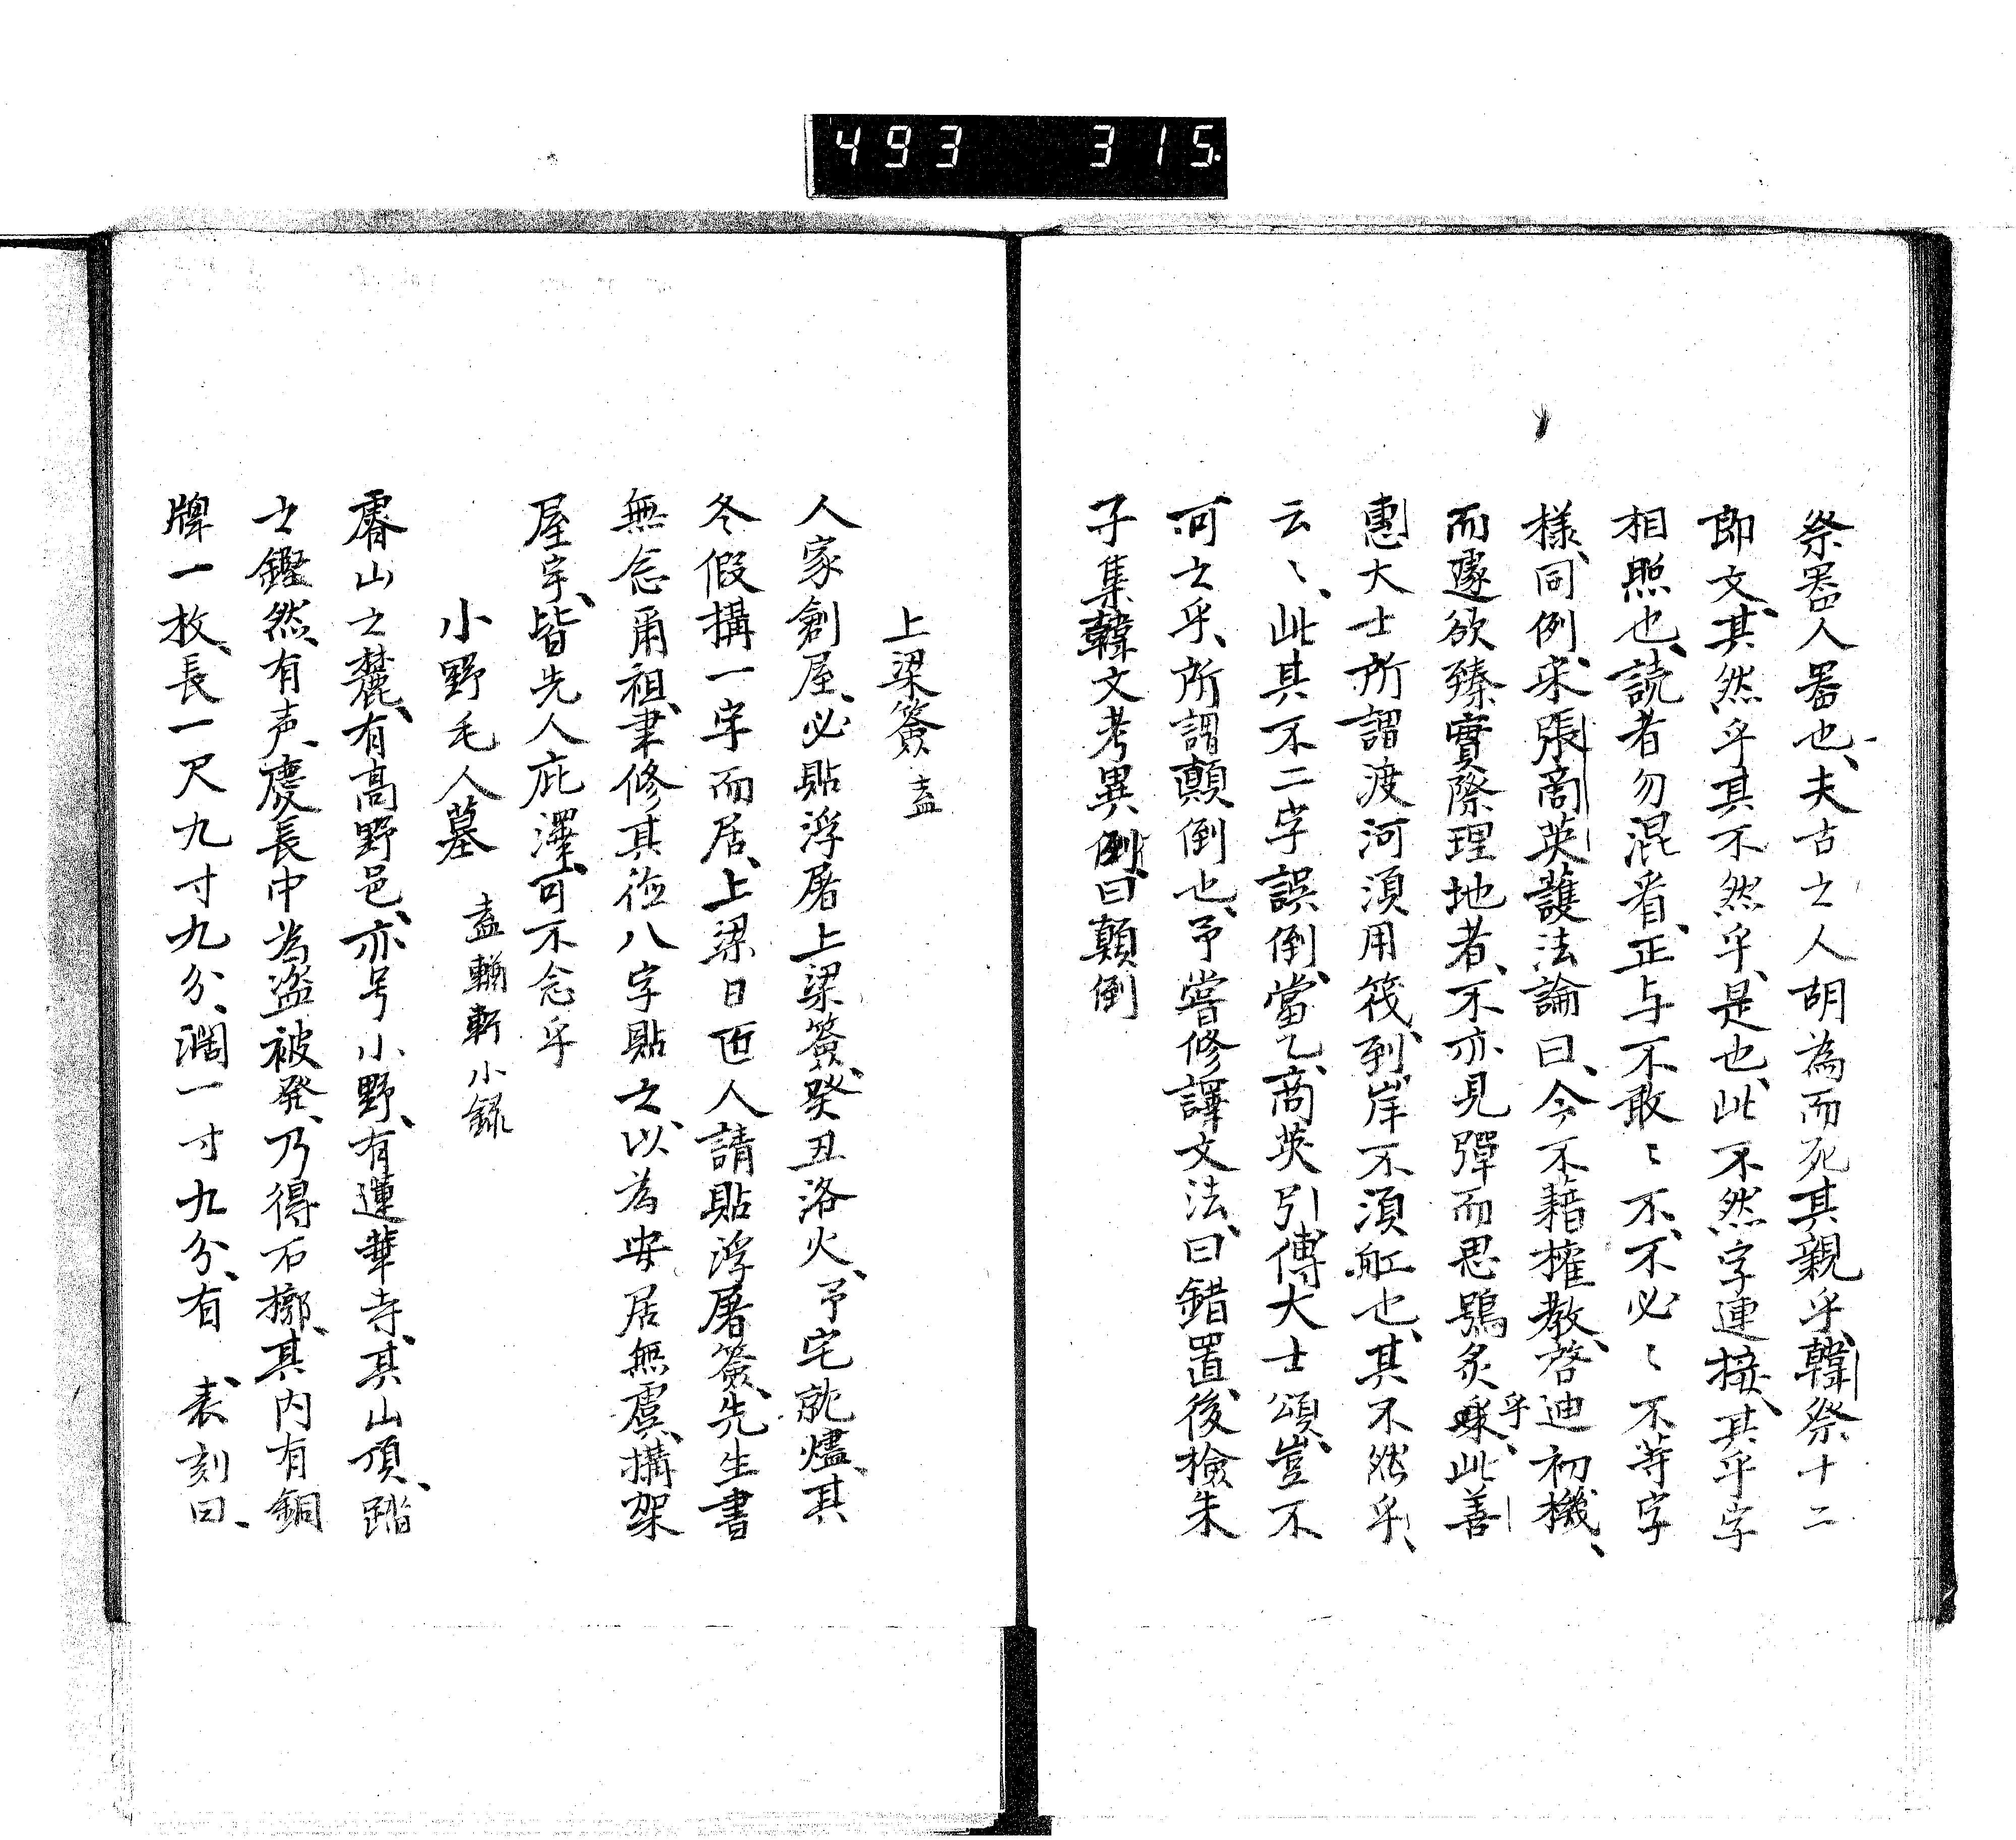 493 315
祭器人器也、夫古之人胡為而死其親乎、韓祭十二
郎文、其然乎其不然乎、是也、此不然字連接、其乎字
相照也、読者勿混看、正与不敢〻不、不必〻不等字
様、同例、宋張商英護法論曰、今不藉権教、啓迪初機、
而遽欲臻實際理地者、不亦見彈而思鴞炙乎、此善
惠大士所謂渡河須用筏、到岸不須舡也、其不然乎、
云〻、此其不二字誤倒、當乙、商英引傅大士頌、豈不
可之乎、所謂顛倒也、予嘗修譯文法、曰錯置、後検朱
子集韓文考異例、曰顛倒
上梁簽 盍
人家創屋、必貼浮屠上梁簽、癸丑洛火、予宅就燼、其
冬假構一宇而居、上梁日匠人請貼浮屠簽、先生書
無念爾祖、聿修其徳八字貼之、以為安居無虞、構架
屋宇、皆先人庇澤、可不念乎
小野毛人墓 盍簪 輶軒小録
睿山之麓、有高野邑、亦号小野、有蓮華寺、其山頂、踏
之鏗然、有声、慶長中為盗被発、乃得石槨、其内有銅
牌一枚、長一尺九寸九分、濶一寸九分、有 表刻曰、